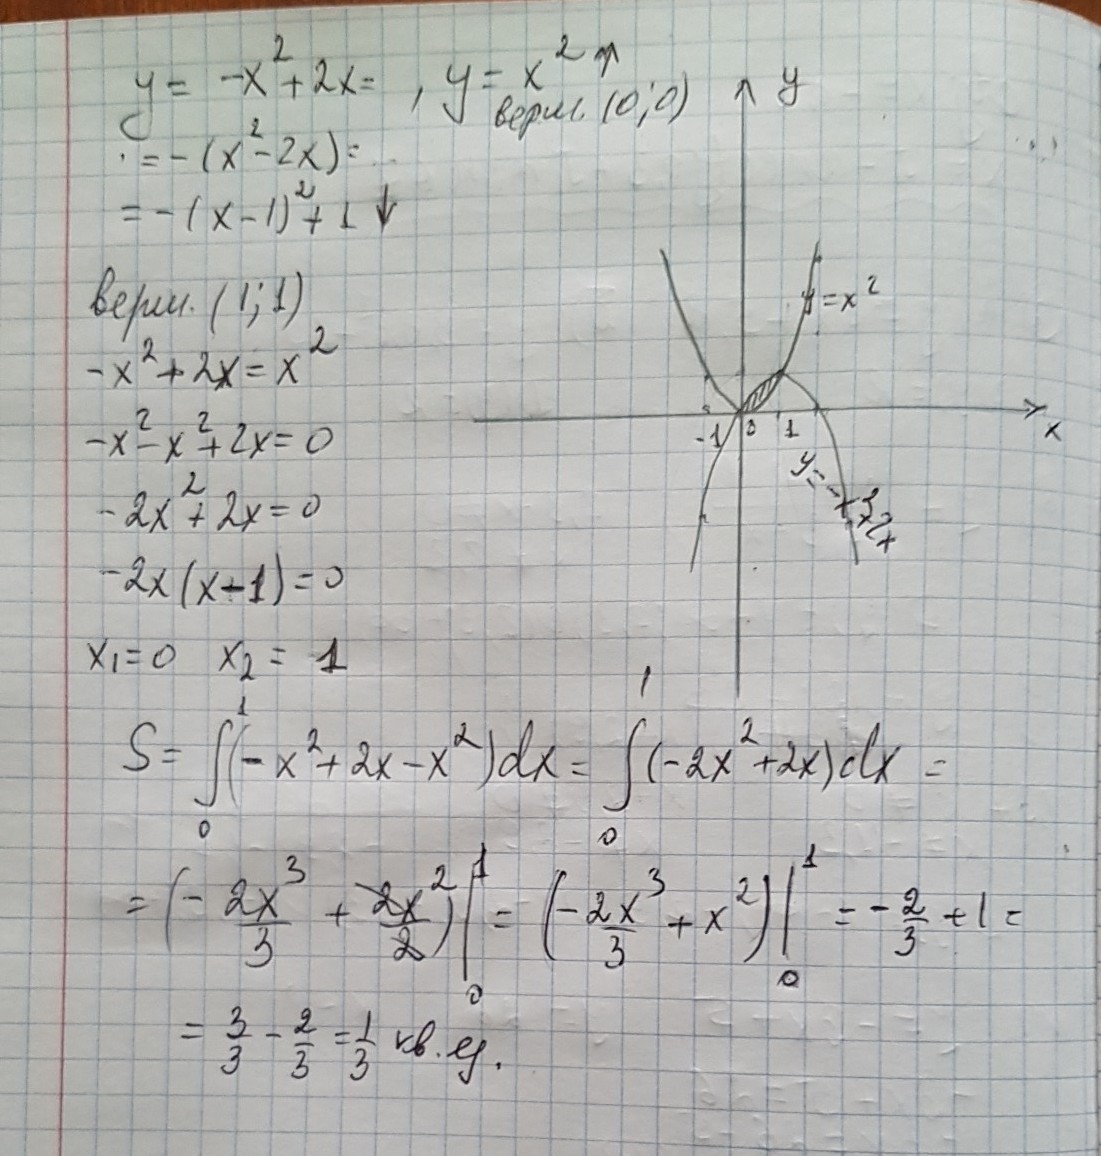 y = -x² + 2x = , y = x² ↑
верш. (0;0)
= -(x² - 2x) =
= -(x-1)² + 1 ↓
верш. (1;1)
-x² + 2x = x²
-x² - x² + 2x = 0
-2x² + 2x = 0
-2x(x-1) = 0
x₁ = 0 x₂ = 1
y
y = x²
-1 0 1
x
S = ∫₀¹(-x² + 2x - x²)dx = ∫₀¹(-2x² + 2x)dx =
= (-2x³/3 + 2x²/2)|₀¹ = (-2x³/3 + x²)|₀¹ = -2/3 + 1 =
= 3/3 - 2/3 = 1/3 кв. ед.